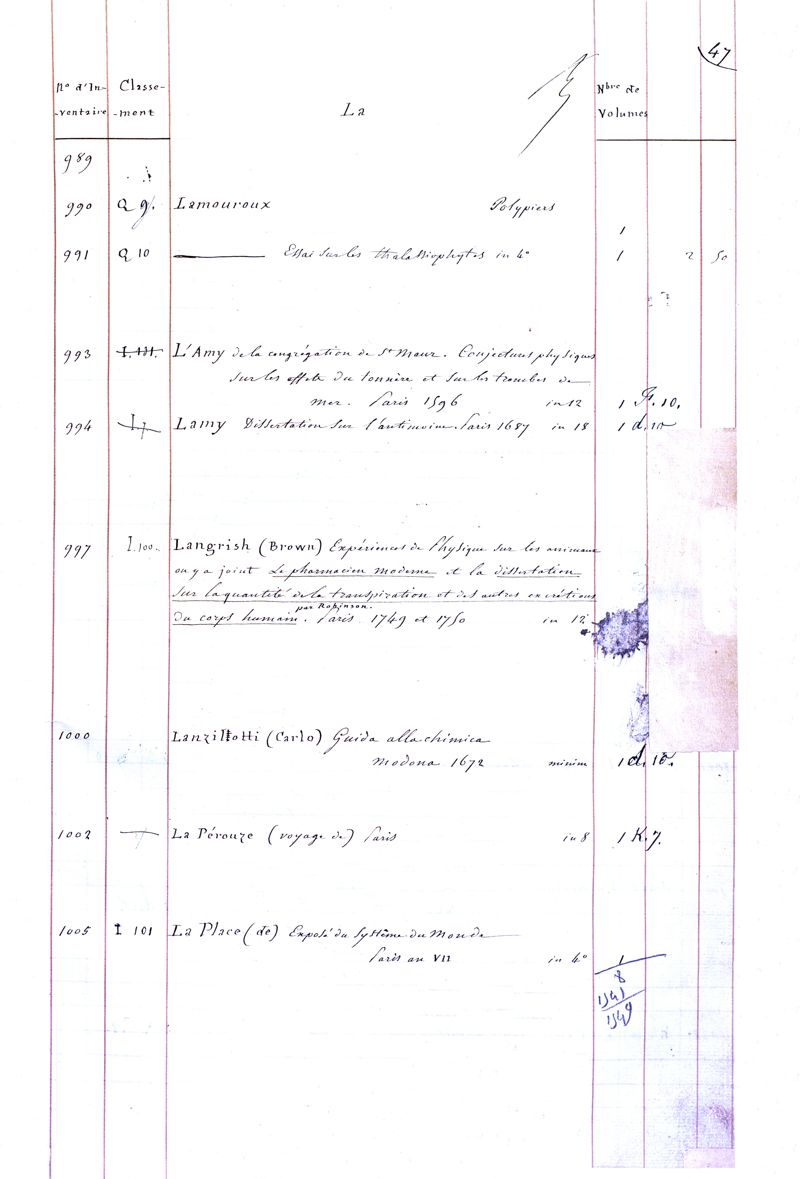 47
N° d'In- Classe- Nbre de
-ventaire -ment La Volumes
989
990 Q 9. Lamouroux Polypiers
1
991 Q 10 ——— Essai sur les thalassiophytes in 4° 1 2 50
993 I. 131. L'Amy de la congrégation de St Maur. Conjectures physiques
sur les effets du tonnère et sur les trombes de
mer. Paris 1596 in 12 1 F. 10.
994 I 7 Lamy Dissertation sur l'antimoine. Paris 1687 in 18 1 d. 10
997 I. 100. Langrish (Brown) Expériences de Physique sur les animaux
on y a joint Le pharmacien moderne et la dissertation
sur la quantité de la transpiration et des autres excrétions
par Robinson.
du corps humain. Paris 1749 et 1750 in 12
1000 Lanzillotti (Carlo) Guida alla chimica
Modona 1672 minim 1 d. 18.
1002 La Pérouze (voyage de) Paris in 8 1 K. 7.
1005 I 101 La Place (de) Exposé du Système du Monde
Paris an VII in 4° 1
8
1541
1549